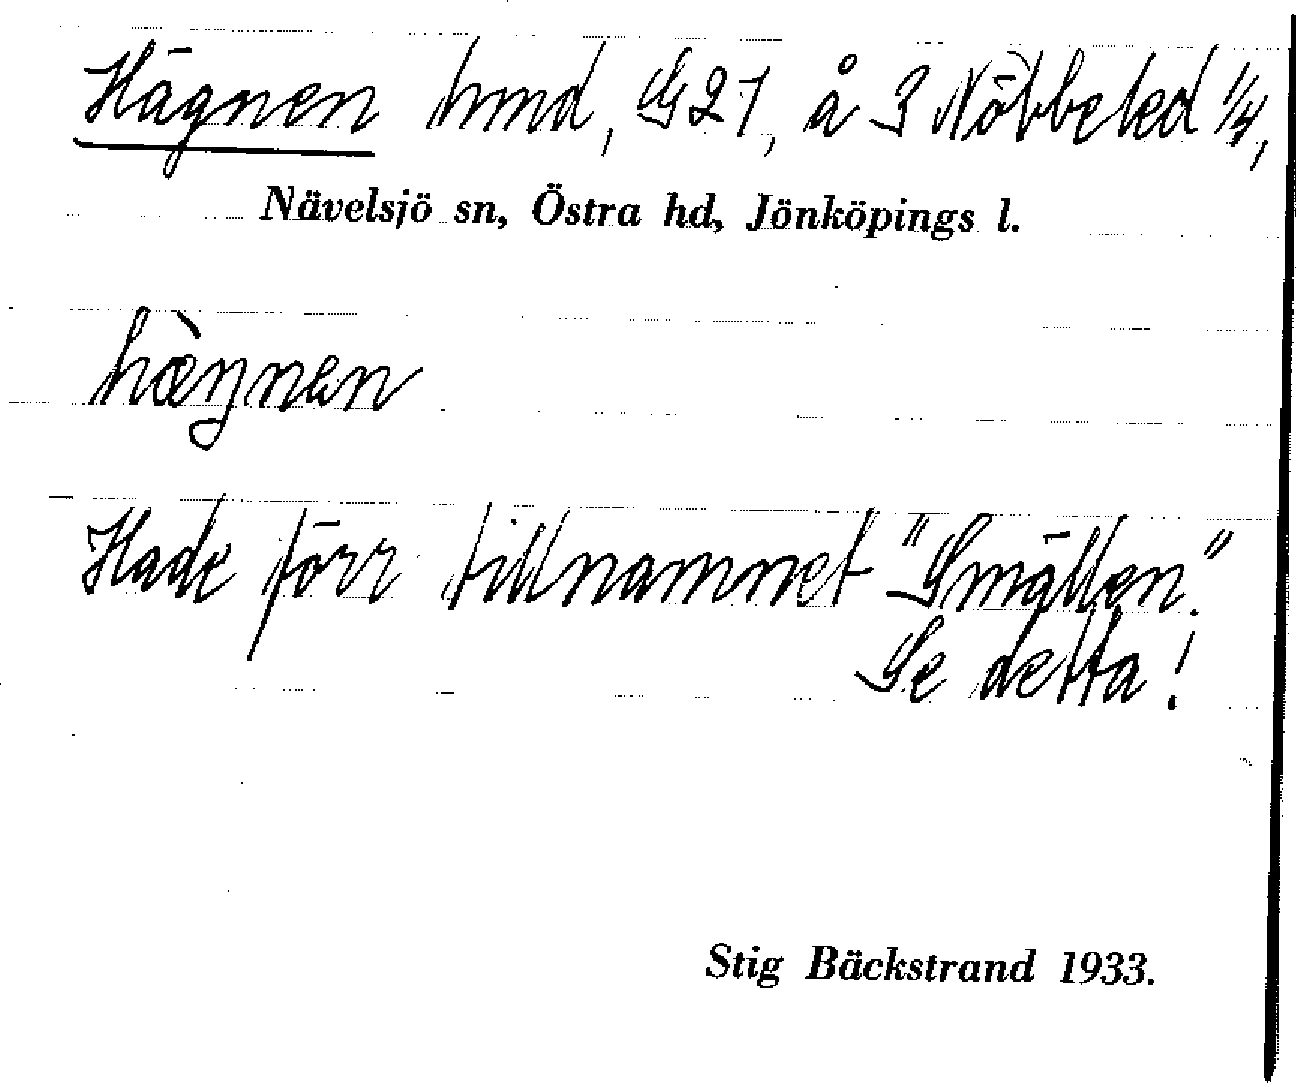 Hägnen hmd, G 21, å 3 Nöbbeled 1/4,
Nävelsjö sn, Östra hd, Jönköpings l.
hæ̀ŋnen
Hade förr tillnamnet "Smällen."
Se detta!
Stig Bäckstrand 1933.